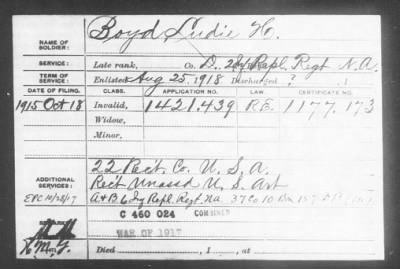 NAME OF SOLDIER: Boyd, Ludie H.
SERVICE: Late rank, Co. D. 2 Repl. Regt N.A.
TERM OF SERVICE: Enlisted Aug 25, 1918 Discharged ? , 1
DATE OF FILING. CLASS. APPLICATION NO. LAW. CERTIFICATE NO.
1915 Oct 18 Invalid, 1421.439 1177.173
Widow,
Minor,
ADDITIONAL SERVICES: 22 Rec't. Co. U.S.A.
Rec't Unassd U.S. Art
A & B 6 Repl. Regt. Na. 37 Co 10
C 460 024 COMBINED
REMARKS: WAR OF 1917
Died , 1 , at